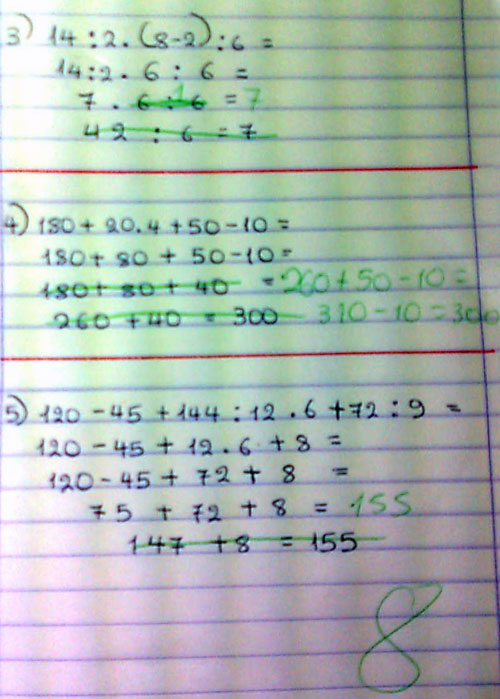 3) 14 : 2 . (8-2) : 6 =
14 : 2 . 6 : 6 =
7 . 6 : 6 1 = 7
42 : 6 = 7
4) 180 + 20.4 + 50 - 10 =
180 + 80 + 50 - 10 =
180 + 80 + 40 = 260 + 50 - 10 =
260 + 40 = 300 310 - 10 = 300
5) 120 - 45 + 144 : 12 . 6 + 72 : 9 =
120 - 45 + 12 . 6 + 8 =
120 - 45 + 72 + 8 =
75 + 72 + 8 = 155
147 + 8 = 155
8